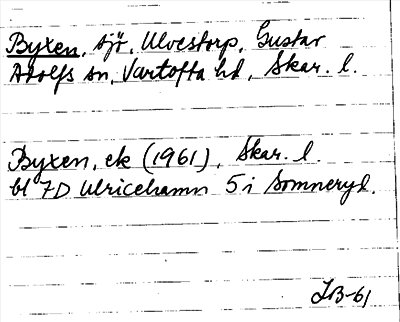 Byxen, sjö, Ulvestorp, Gustav
Adolfs sn, Vartofta hd, Skar. l.
Byxen, ek (1961), Skar. l.
bl 7D Ulricehamn 5 i Somneryd.
IB-61